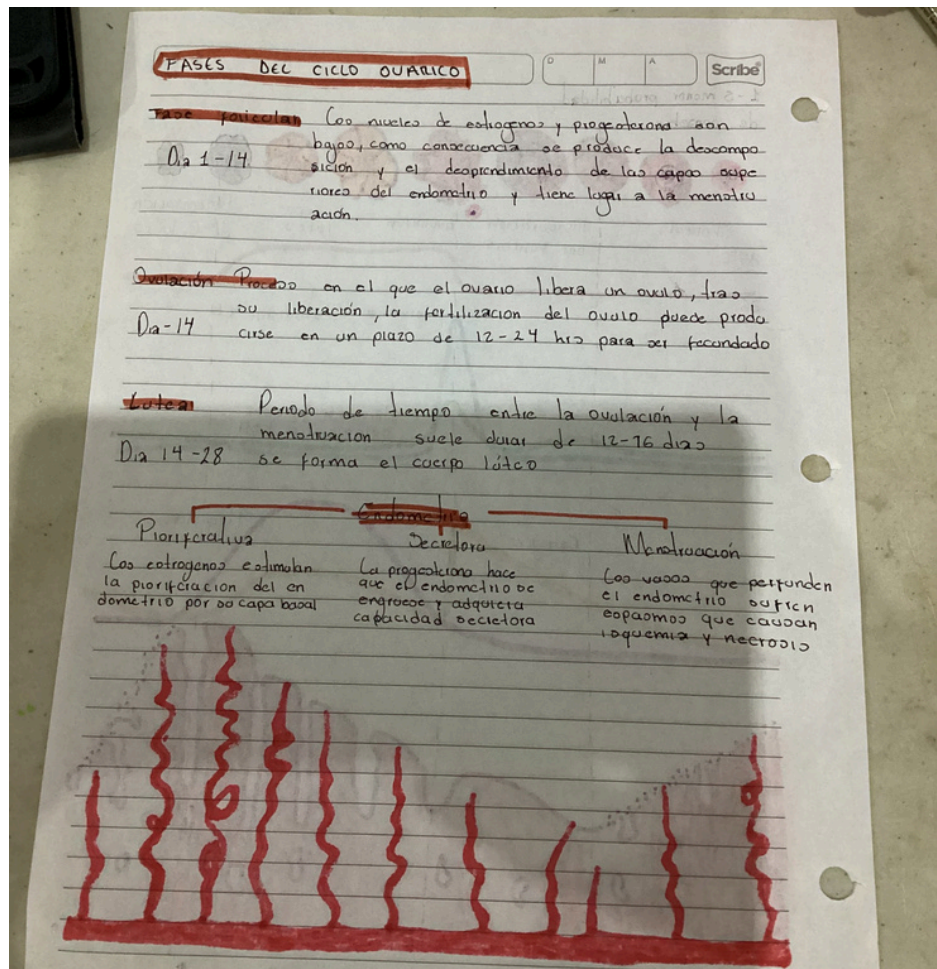 FASES DEL CICLO OVARICO
D M A
Scribe
Fase folicular Los niveles de estrogenos y progesterona son
bajos, como consecuencia se produce la descompo
Dia 1-14
sición y el desprendimiento de las capas supe
riores del endometrio y tiene lugar a la menstru
ación.
Ovulación Proceso en el que el ovario libera un ovulo, tras
su liberación, la fertilizacion del ovulo puede produ
Dia-14 cirse en un plazo de 12-24 hrs para ser fecundado
Lutea Periodo de tiempo entre la ovulación y la
menstruacion suele durar de 12-16 dias
Dia 14-28 se forma el cuerpo lúteo
Endometrio
Proliferativa Secretora Menstruación
Los estrogenos estimulan
la proliferacion del en
dometrio por su capa basal
La progesterona hace
que el endometrio se
engruese y adquiera
capacidad secretora
Los vasos que perfunden
el endometrio sufren
espasmos que causan
isquemia y necrosis